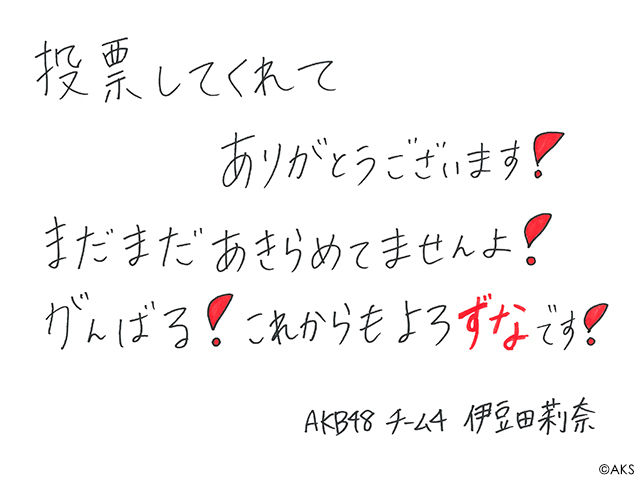 投票してくれて
ありがとうございます!
まだまだあきらめてませんよ!
がんばる!これからもよろずなです!
AKB48 チーム4 伊豆田莉奈
©AKS